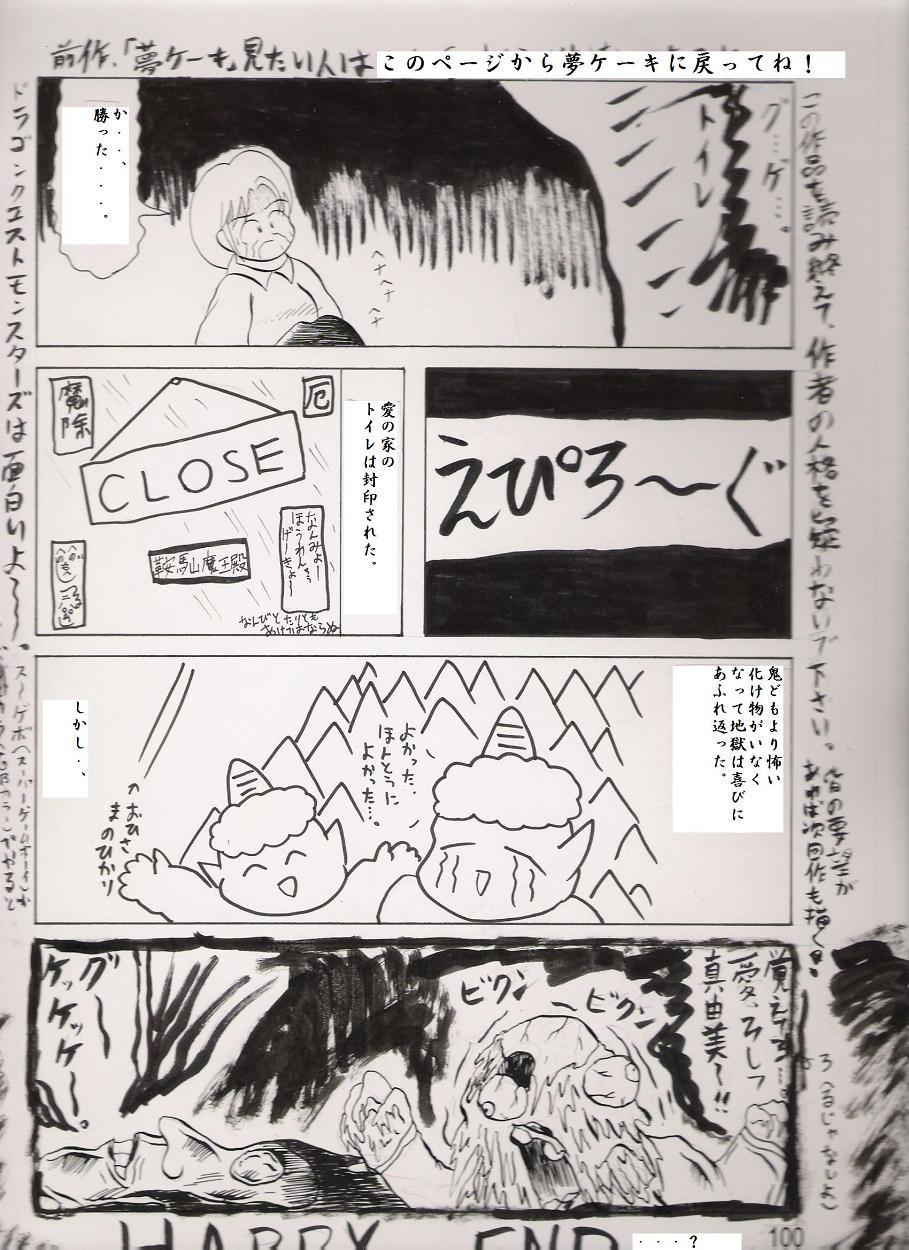 前作、「夢ケーキ」見たい人は
このページから夢ケーキに戻ってね！
この作品を読み終えて、作者の人格を疑わないで下さい。
皆の要望が
あれば次回作も描く!
グ…ゲ…。
トイレ
か・・、
勝った・・・・。
ヘナ
ヘナ
ヘナ
ドラゴンクエストモンスターズは面白いよ～～～。
えぴろ～～ぐ
愛の家の
トイレは封印された。
魔除
厄
CLOSE
なんみょー
ほうれん
げーきょー
鞍馬山魔王殿
なんびとたりとも
あけてはならぬ
鬼どもより怖い
化け物がいなく
なって地獄は喜びに
あふれ返った。
よかった。
ほんとうに
よかった…。
おひさ
まのひかり
しかし・、
覚えてろ…
愛、そして
真由美〜!!
ビクン
ビクン
グ
ケッケケー。
HAPPY END
・・・？
100